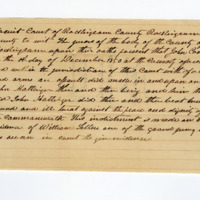 Circuit Court of Rockingham County Rockingham
County to wit. The jurors of the body of the County of
Rockingham upon their oaths present that John
the 16 day of December 1870 at the County aforesaid
and in the jurisdiction of this Court with
and arms an assault did make in and upon one
John Hatliger then and there being and him the
said John Hatliger did then and there beat
wound and ill treat against the peace and dignity of
the Commonwealth This indictment is made on the
evidence of William Sellers one of the grand jury
sworn in court to give evidence